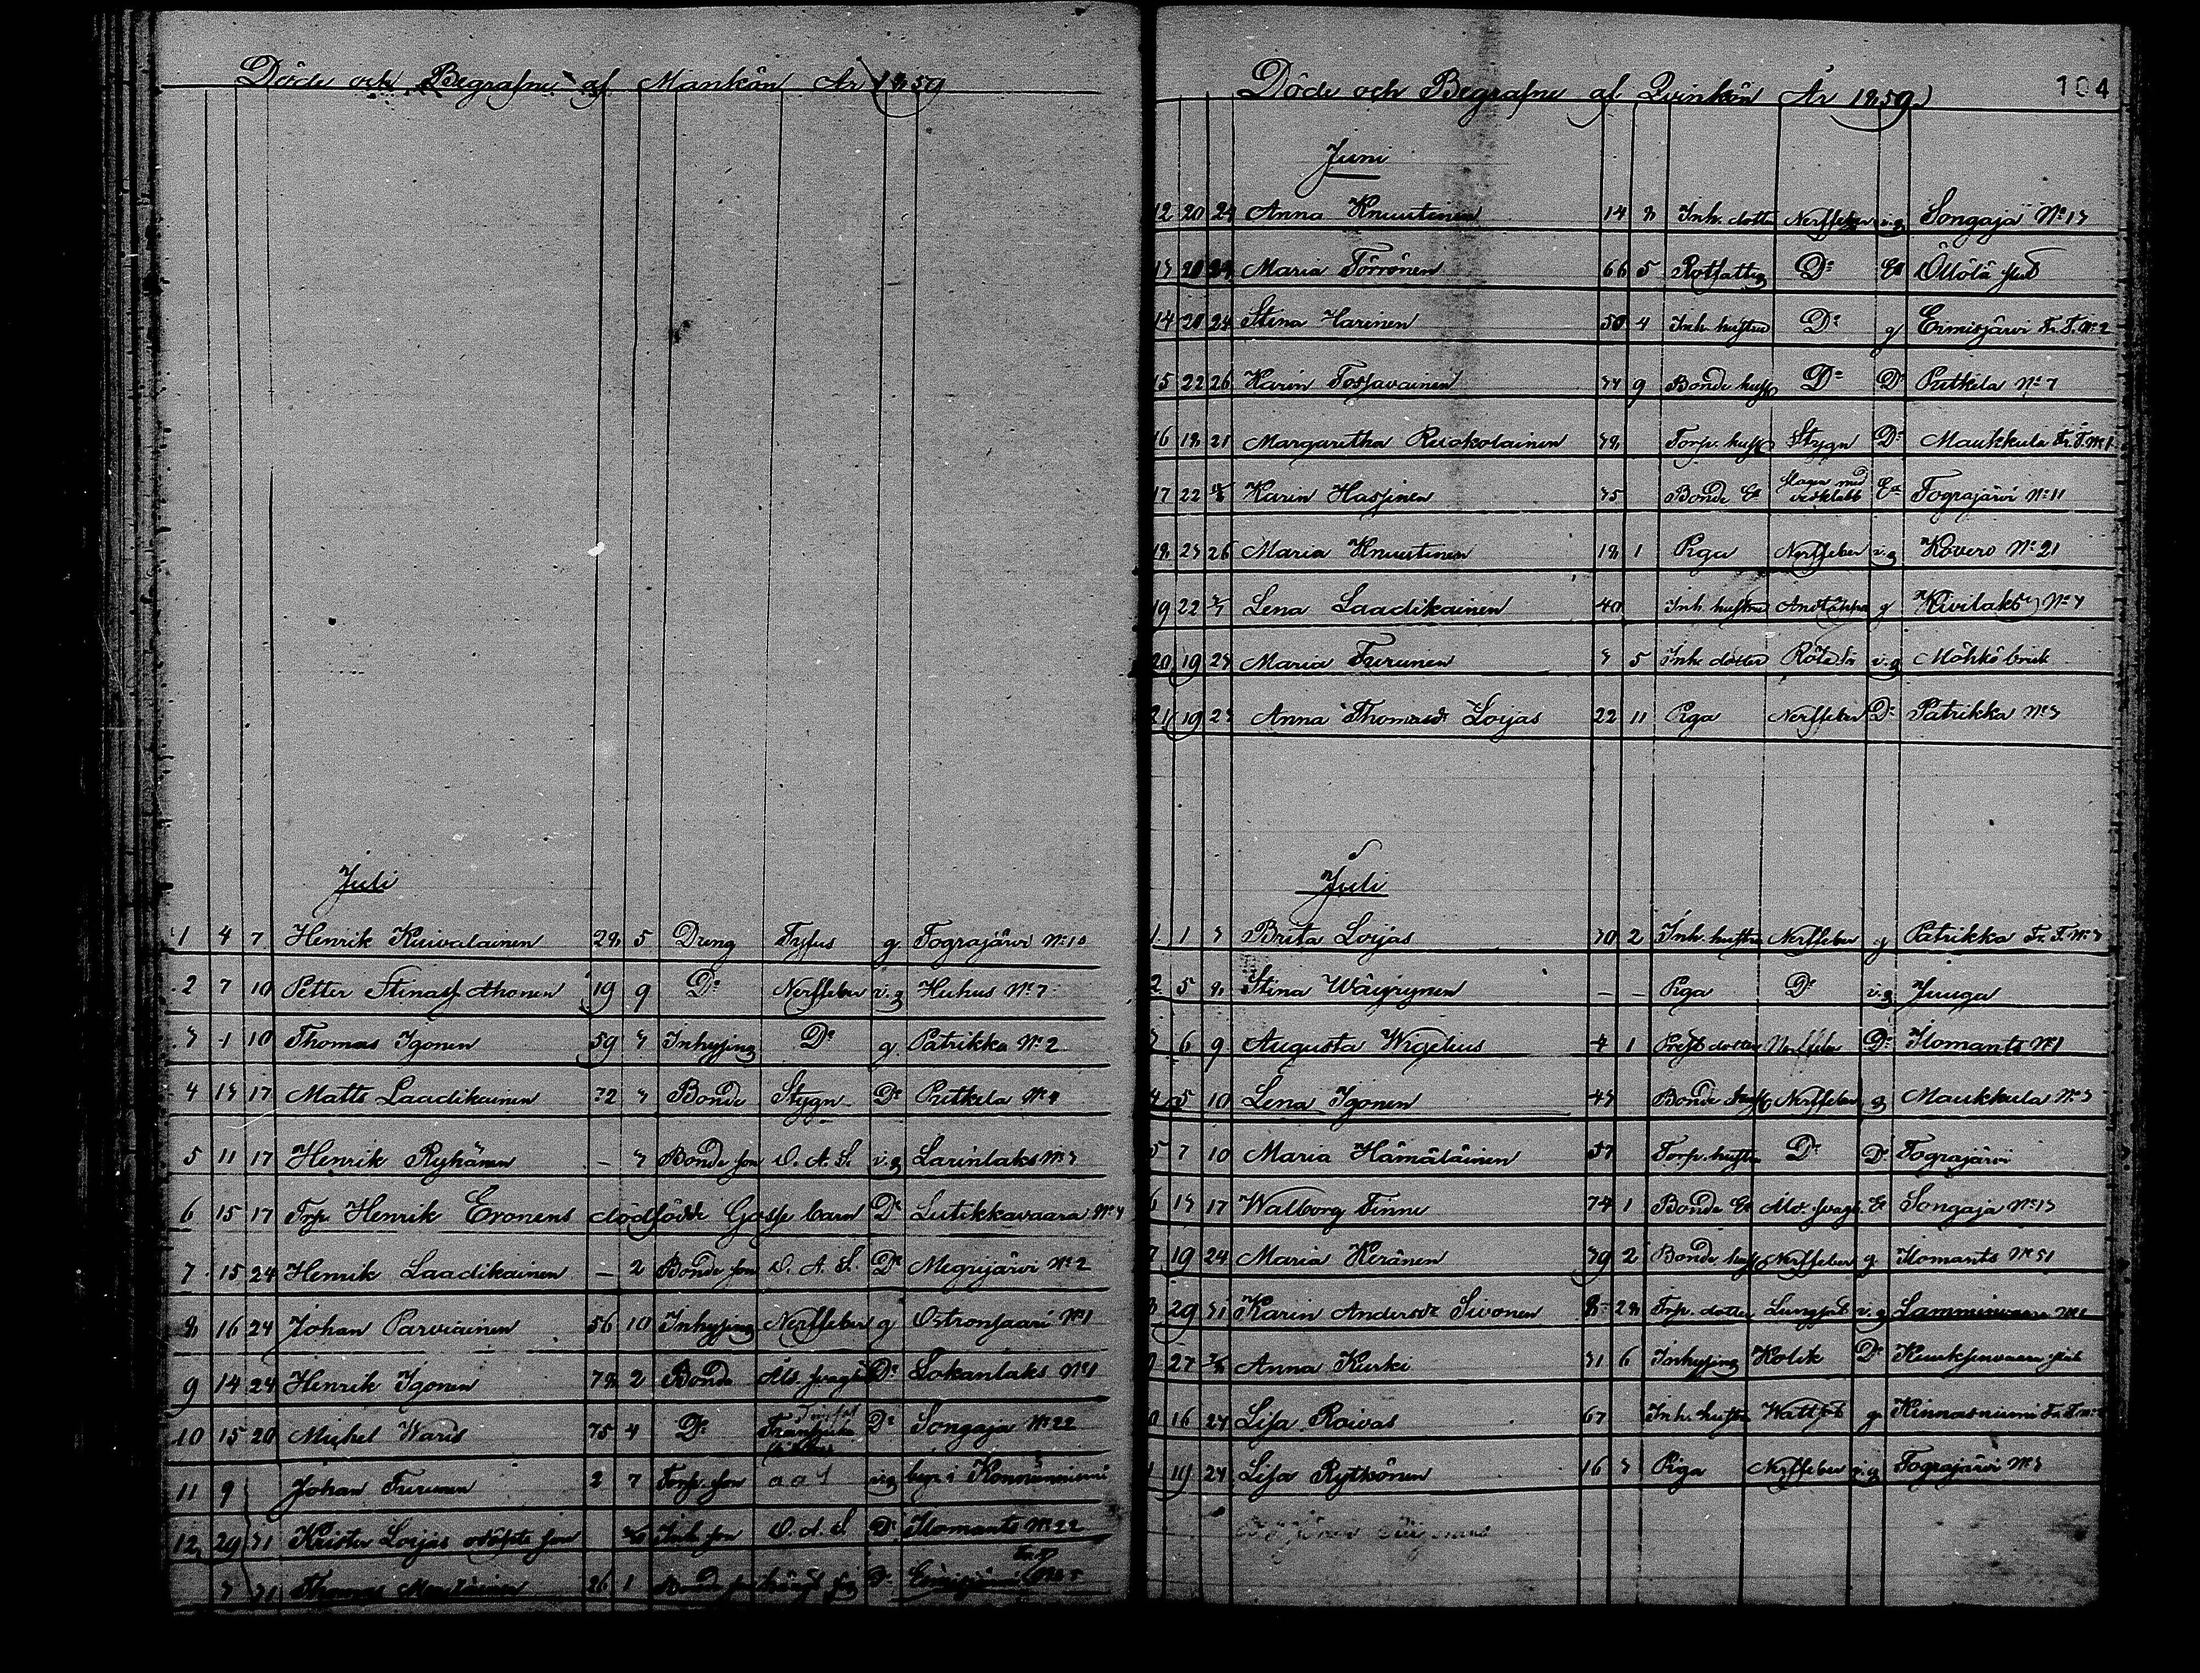 Döde och Begrafne af Mankön År 1859
Juli
1 4 7 Henrik Kuivalainen 28 5 Dreng Tyfus g. Tograjärvi No 10
2 7 10 Petter Stinass. Ahonen 19 9 Do Nerffeber v.g Huhus No 7
3 1 10 Thomas Igonen 59 3 Inhysing Do g. Patrikka No 2
4 13 17 Matts Laadikainen 32 3 Bonde Stygn Do Putkela No
5 11 17 Henrik Ryhänen – 3 Bonde son O. A. S. v.g Larinlaks No 3
6 15 17 Trp. Henrik Eronens dödfödde Gosse barn Do Lutikkavaara No
7 15 24 Henrik Laadikainen – 2 Bonde son O. A. S. Do Megrijärvi No 2
8 16 24 Johan Parviainen 56 10 Inhysing Nerffeber g Ostronsaari No 1
9 14 24 Henrik Igonen 78 2 Bonde Åld. svagh Do Sokanlaks No 1
10 15 20 Michel Waris 75 4 Do Do Songaja No 22
11 9 Johan Turunen 2 7 Torp. son a a S v.g begr. i
12 29 31 Krister Loijas odöpte son Inh. son O. A. S Do Ilomants No 22
3 31 Thomas 26 1 Bonde son Do
Döde och Begrafne af Qvinkön År 1859
104
Juni
12 20 24 Anna Knuutinen 14 8 Inh. dotter Nerffeber v.g Songaja No 13
13 20 Maria Törrönen 66 5 Rotfattig Do Ea Öllölä
14 20 24 Stina Harinen 50 4 Inh. hustru Do g Eimisjärvi Fr. T. No 2
15 22 26 Karin Tossavainen 34 9 Bonde hust Do Do Putkela No 7
16 18 21 Margaretha Ruokolainen 38 Torp. hust Stygn Do Maukkula Fr. T. No 1
17 22 Karin Hassinen 35 Bonde Ea slagen med vedklabb Ea Tograjärvi No 11
18 23 26 Maria Knuutinen 18 1 Piga Nerffeber v.g Kovero No 21
19 22 3/7 Lena Laadikainen 40 Inh. hustru Andtäppa g Kivilaks No
20 19 23 Maria Turunen 3 5 Inh. dotter Röts. v.g Möhkö bruk
21 19 23 Anna Thomasdr Loijas 22 11 Piga Nerffeber Do Patrikka No 3
Juli
1 1 3 Brita Loijas 30 2 Inh. hustru Nerffeber g Patrikka Fr. T. No 3
2 5 8 Stina Wäyrynen – – Piga Do v.g Juuga
3 6 9 Augusta Wigelius 4 1 Prest dotter Nerffeber Do Ilomants No 1
4 5 10 Lena Igonen 43 Bonde hust Nerffeber g Maukkula No 3
5 7 10 Maria Hämäläinen 57 Torp. hustru Do Do Tograjärvi
6 13 17 Walborg Tinnu 74 1 Bonde Ea Åld. svagh. Ea Songaja No 13
7 19 24 Maria Keränen 39 2 Bonde hust Nerffeber g. Ilomants No 51
8 29 31 Karin Andersdr Sivonen 8 28 Trp. dotter Lungsot v.g
9 27 Anna Kurki 31 6 Inhysing Kolik Do
10 16 24 Lisa Roivas 67 Inh. hustru Wattsot g Kinnasniemi Fr. T. No
11 19 24 Lisa Rytkönen 16 3 Piga Nerffeber v.g Tograjärvi No 3